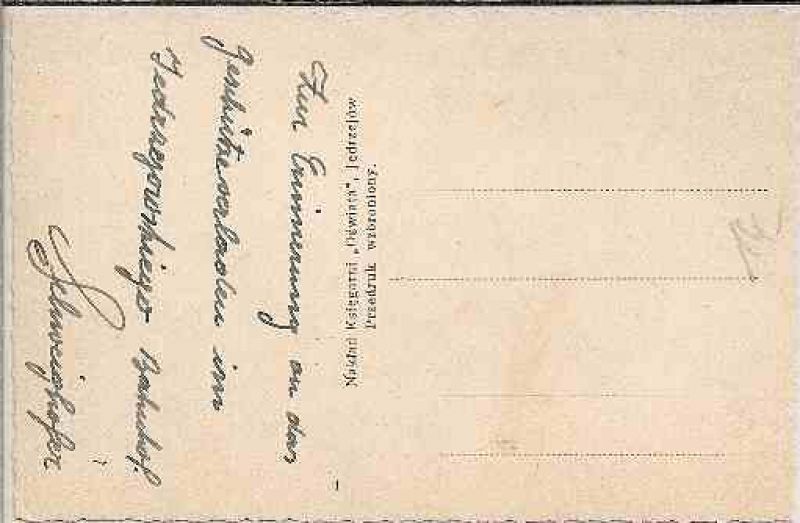 Zur Erinnerung an das
Geschützverladen im
Jedrzegowskiego Bahnhof!
Schweighofer
Nakład Księgarni „Oświata", Jędrzejów
Przedruk wzbroniony.